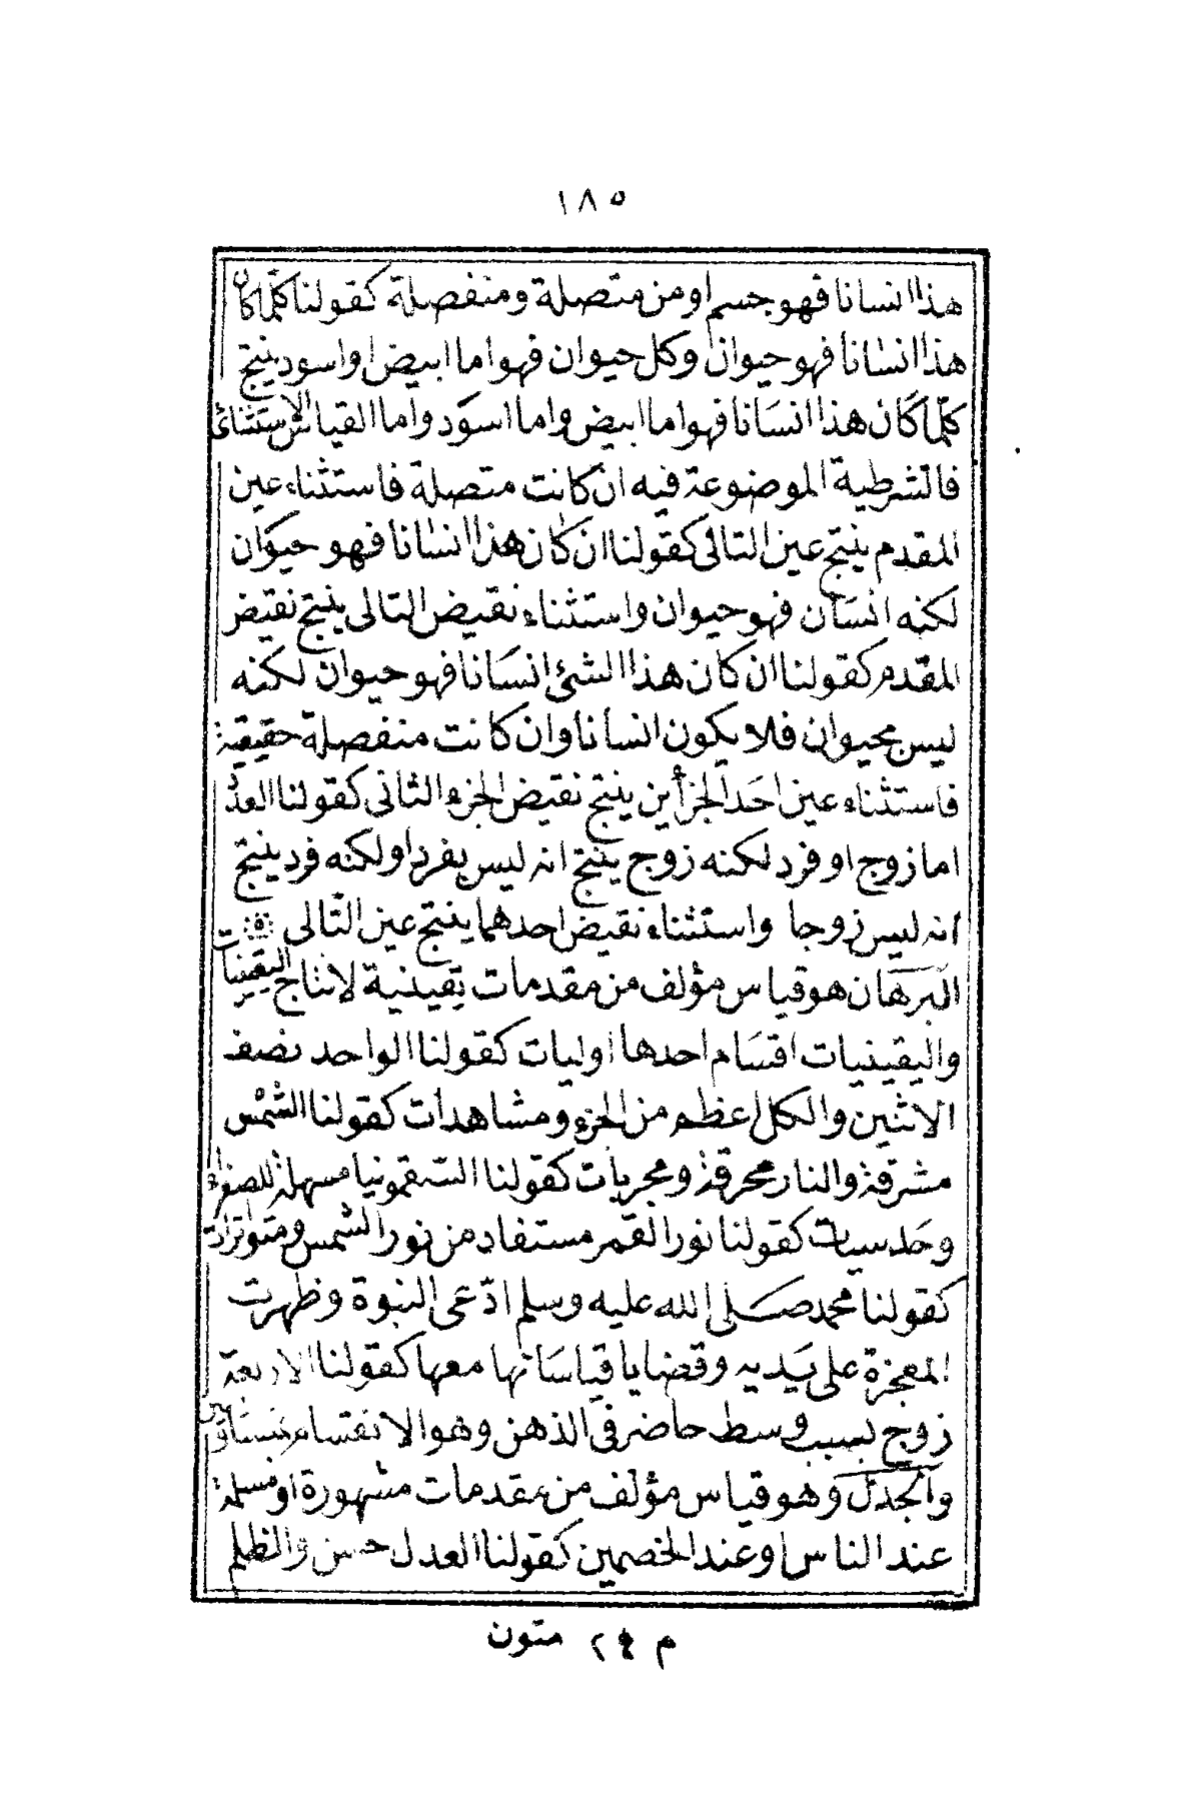 ١٨٥
هذا انسانا فهو جسم او من متصلة ومنفصلة كقولنا كلما كان
هذا انسانا فهو حيوان وكل حيوان فهو اما ابيض او اسود ينتج
كلّما كان هذا انسانا فهو اما ابيض واما اسود واما القياس الاستثنائى
فالشرطية الموضوعة فيه ان كانت متصلة فاستثناء عين
المقدم ينتج عين التالى كقولنا ان كان هذا انسانا فهو حيوان
لكنه انسان فهو حيوان واستثناء نقيض التالى ينتج نقيض
المقدم كقولنا ان كان هذا الشئ انسانا فهو حيوان لكنه
ليس بحيوان فلا يكون انسانا وان كانت منفصلة حقيقية
فاستثناء عين احد الجزأين ينتج نقيض الجزء الثانى كقولنا العدد
اما زوج او فرد لكنه زوج ينتج انه ليس بفرد او لكنه فرد ينتج
انه ليس زوجا واستثناء نقيض احدهما ينتج عين التّالى
البرهان هو قياس مؤلف من مقدمات يقينية لانتاج اليقينيات
واليقينيات اقسام احدها اوليات كقولنا الواحد نصف
الاثنين والكل اعظم من الجزء ومشاهدات كقولنا الشمس
مشرقة والنار محرقة ومجربات كقولنا السقمونيا مسهلة للصفراء
وحدسيات كقولنا نور القمر مستفاد من نور الشمس ومتواترات
كقولنا محمد صلى الله عليه وسلم ادّعى النبوة وظهرت
المعجزة على يديه وقضايا قياساتها معها كقولنا الاربعة
زوج بسبب وسط حاضر فى الذهن وهو الانقسام بمتساويين
والجدل وهو قياس مؤلف من مقدمات مشهورة او مسلمة
عند الناس او عند الخصمين كقولنا العدل حسن والظلم
م ٢٤ متون